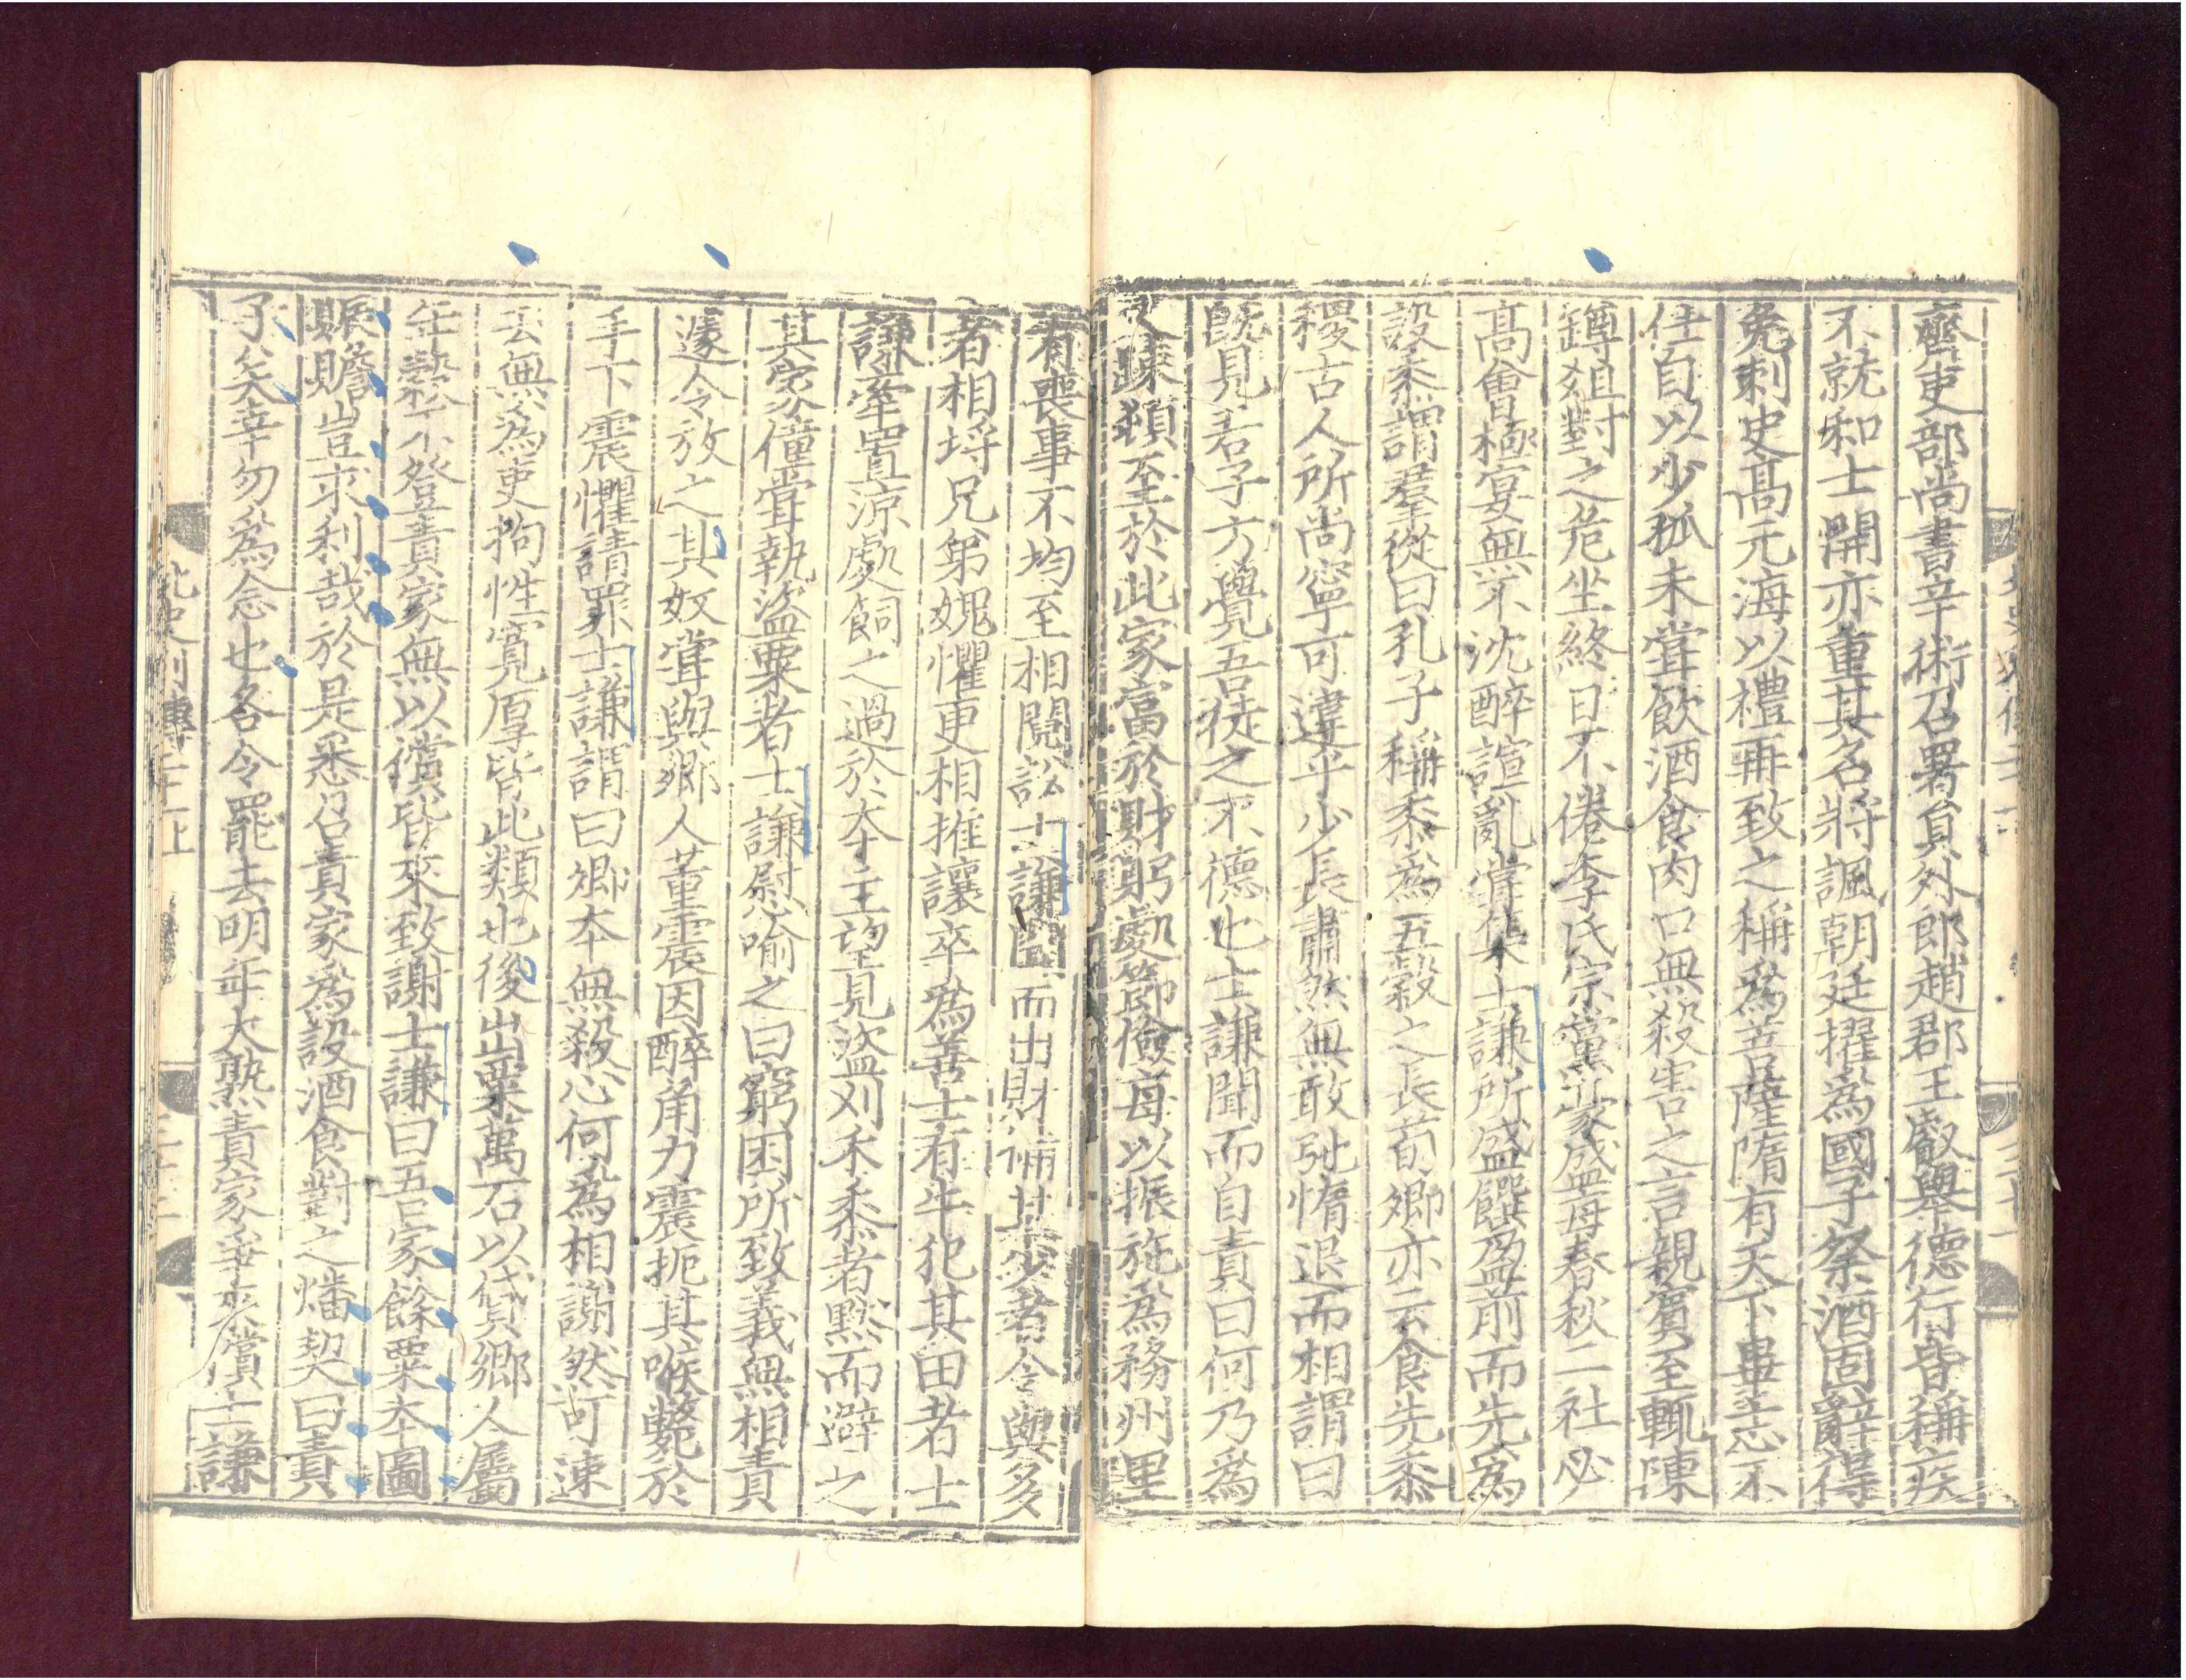 齊吏部尚書辛術召署貟外郎趙郡王叡舉德行皆稱疾
不就和士開亦重其名將諷朝廷擢爲國子祭酒固辭得
免刺史高元海以禮再致之稱爲菩薩隋有天下畢志不
仕自以少孤未甞飲酒食肉口無殺害之言親賓至輒陳
罇俎對之危坐終日不倦李氏宗黨豪盛每春秋二社必
高會極宴無不沈醉諠亂甞集士謙所盛饌盈前而先爲
設黍謂羣從曰孔子稱黍爲五穀之長荀卿亦云食先黍
稷古人所尚寧可違乎少長肅然無敢弛惰退而相謂曰
旣見君子方覺吾徒之不德也士謙聞而自責曰何乃爲
人踈頓至於此家富於財躬處節儉每以振施爲務州里
有喪事不均至相鬩訟士謙聞而出財補其少者令與多
者相埒兄弟媿懼更相推讓卒爲善士有牛犯其田者士
謙牽置凉處飼之過於本主望見盜刈禾黍者黙而避之
其家僮甞執盜粟者士謙慰喻之曰窮困所致義無相責
遽令放之其奴甞與鄉人董震因醉角力震扼其喉斃於
手下震懼請罪士謙謂曰卿本無殺心何爲相謝然可速
去無爲吏拘性寬厚皆此類也後出粟萬石以貸鄉人屬
年穀不登責家無以償皆來致謝士謙曰吾家餘粟本圖
賑贍豈求利哉於是悉召責家爲設酒食對之燔契曰責
了矣幸勿爲念也各令罷去明年大熟責家爭來償士謙
北史列傳二十一上